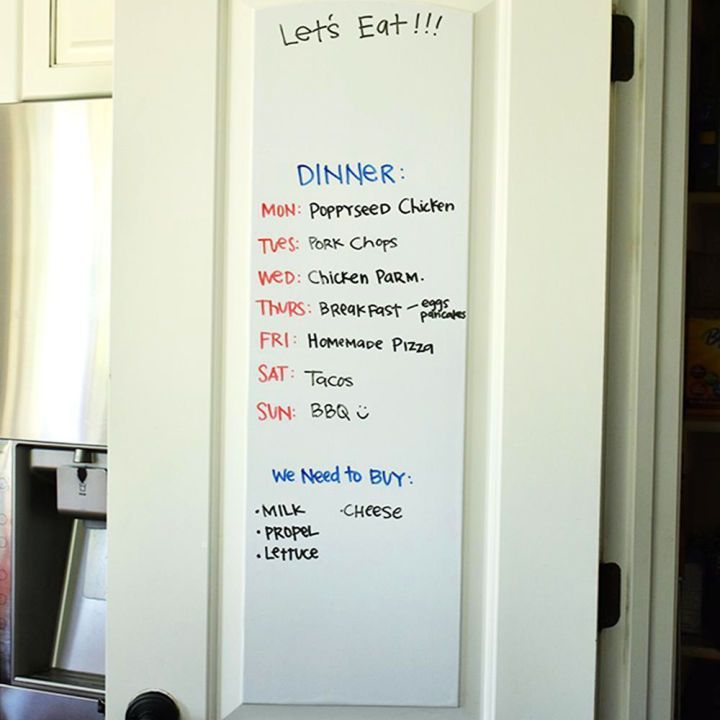 Let's Eat!!!
DINNER:
MON: POPPYSEED Chicken
TUES: PORK Chops
WED: Chicken PARM.
THURS: BREAKFAST - eggs pancakes
FRI: HOMEMADE PIZZA
SAT: TACOS
SUN: BBQ
We Need to BUY:
• MILK • CHEESE
• PROPEL
• LETTUCE